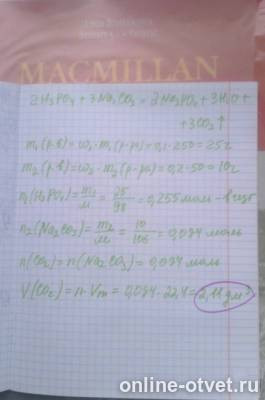 MACMILLAN
2H₃PO₄ + 3Na₂CO₃ = 2Na₃PO₄ + 3H₂O +
+ 3CO₂↑
m₁(р.в) = ω₁ · m₁(р-ра) = 0,1 · 250 = 25г
m₂(р.в) = ω₂ · m₂(р-ра) = 0,2 · 50 = 10г
n₁(H₃PO₄) = m₁/M = 25/98 = 0,255 моль - в изб
n₂(Na₂CO₃) = m₂/M = 10/106 = 0,094 моль
n(CO₂) = n(Na₂CO₃) = 0,094 моль
V(CO₂) = n · Vm = 0,094 · 22,4 = 2,11 дм³
online-otvet.ru